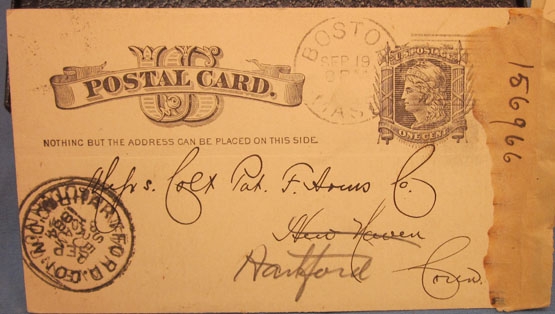 US
POSTAL CARD.
NOTHING BUT THE ADDRESS CAN BE PLACED ON THIS SIDE.
BOSTON
SEP 19
MASS
U.S. POSTAGE
ONE CENT
156966
Messrs. Colt Pat. F. Arms Co.
New Haven
Hartford Conn.
HARTFORD, CONN.